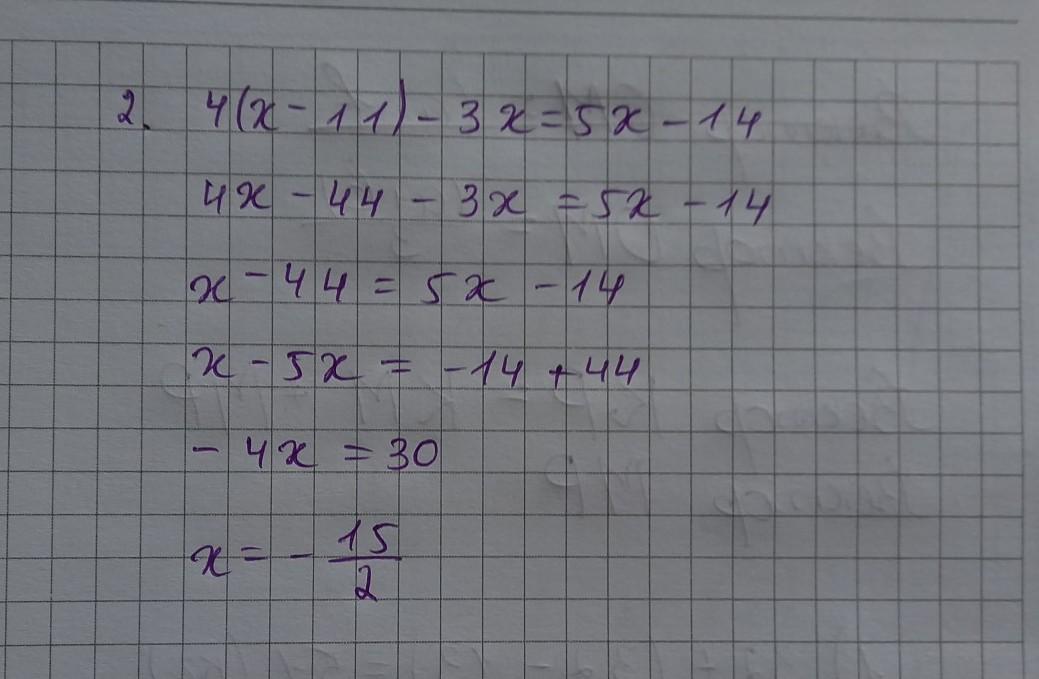 2. 4(x - 11) - 3x = 5x - 14
4x - 44 - 3x = 5x - 14
x - 44 = 5x - 14
x - 5x = -14 + 44
- 4x = 30
x = - 15/2